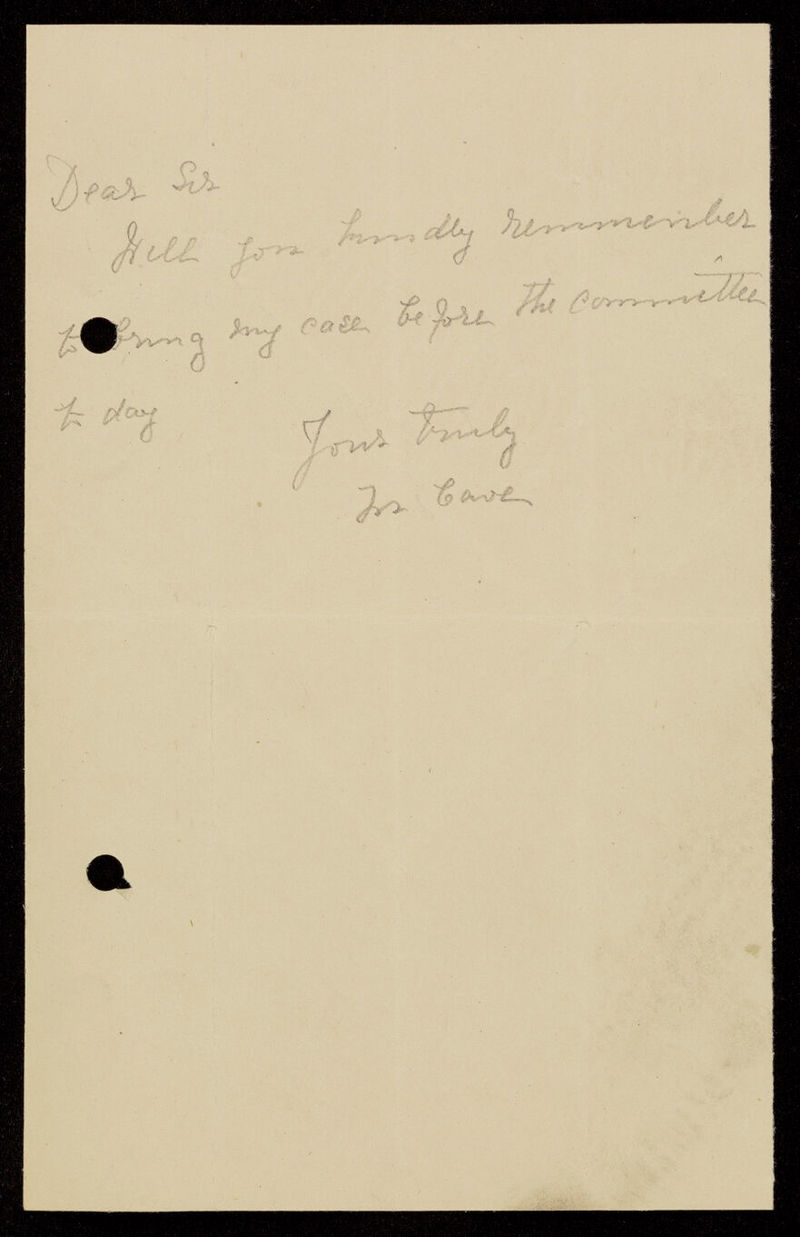 Dear Sir
Will you kindly remmember
to bring my case before the committee
to day
Yours truly
Cave